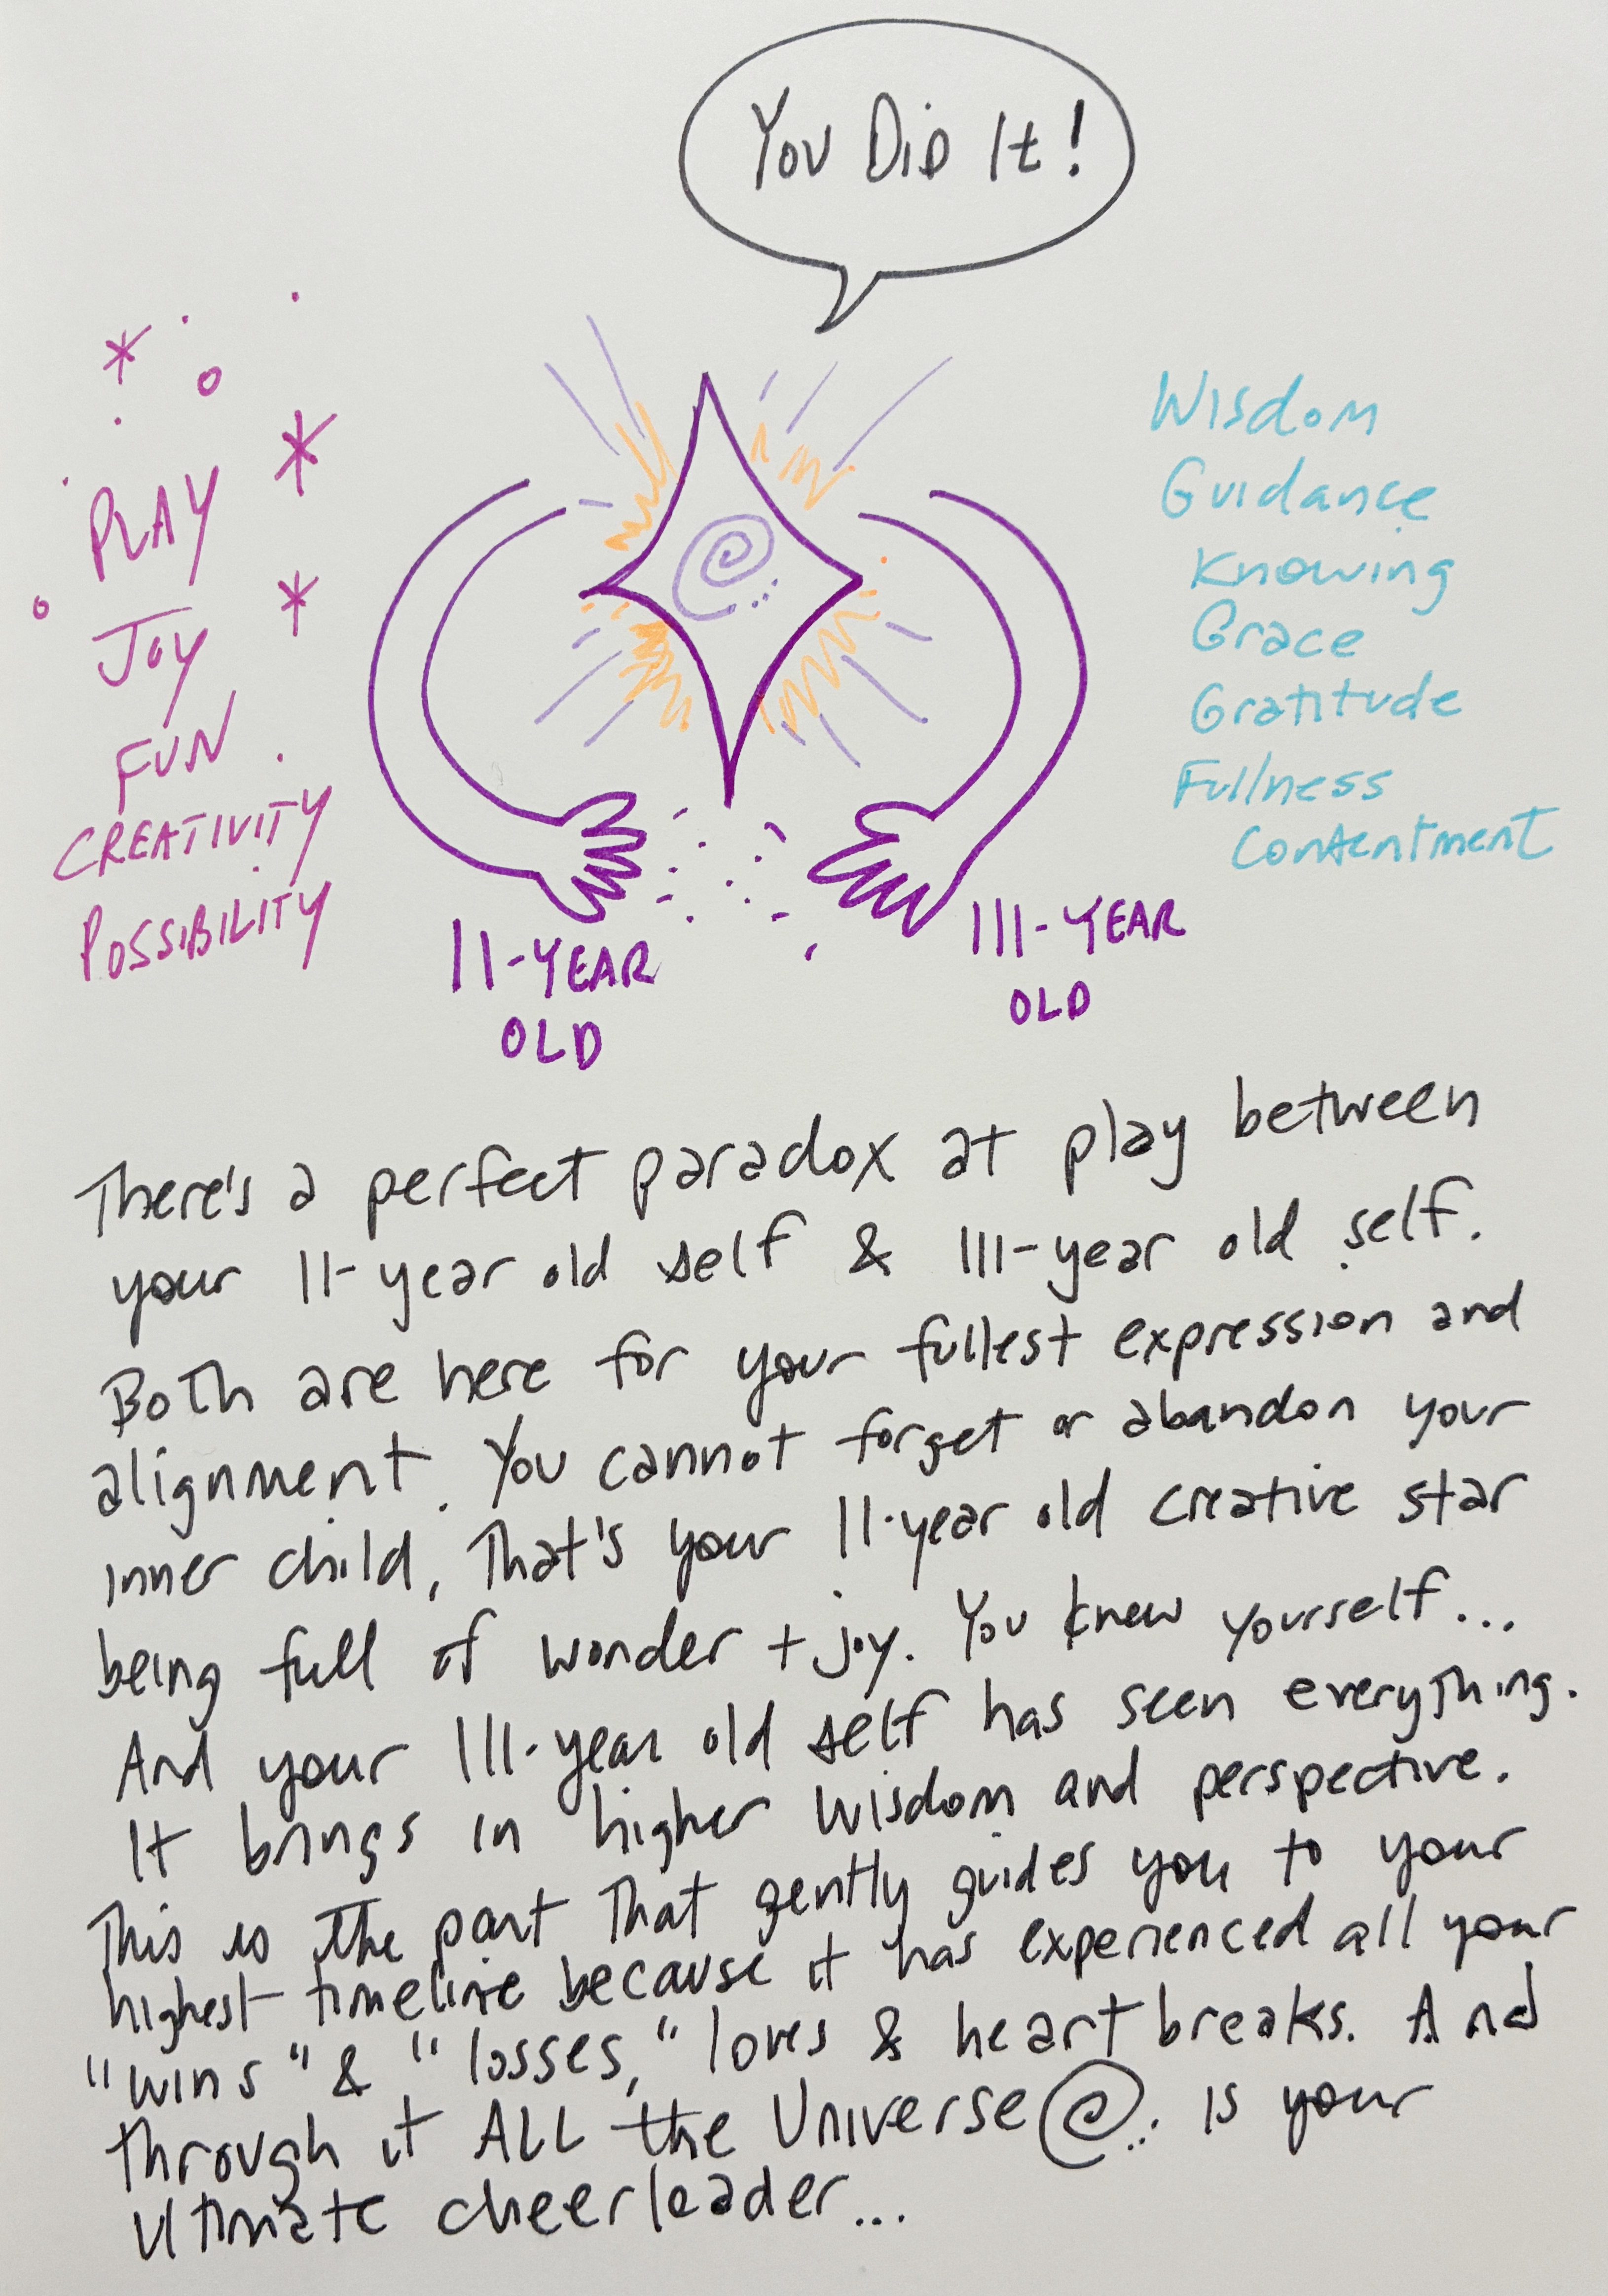 You Did It!
PLAY
JOY
FUN
CREATIVITY
POSSIBILITY
Wisdom
Guidance
Knowing
Grace
Gratitude
Fullness
Contentment
11-YEAR
OLD
111-YEAR
OLD
There's a perfect paradox at play between
your 11-year old self & 111-year old self.
Both are here for your fullest expression and
alignment. You cannot forget or abandon your
inner child. That's your 11-year old creative star
being full of wonder + joy. You knew yourself...
And your 111-year old self has seen everything.
It brings in higher wisdom and perspective.
This is the part that gently guides you to your
highest timeline because it has experienced all your
"wins" & "losses," loves & heartbreaks. And
through it ALL the Universe is your
ultimate cheerleader...